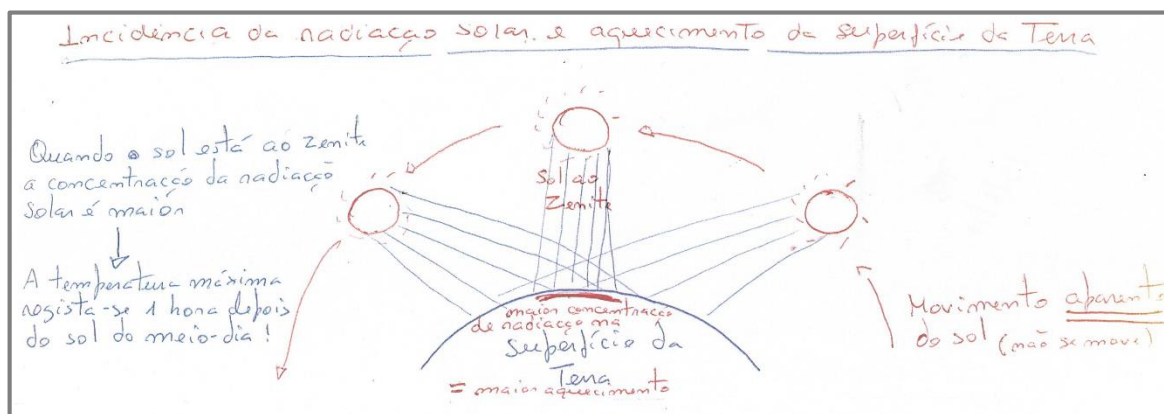 Incidência da radiação solar e aquecimento da superfície da Terra
Quando o sol está ao zenite
a concentração da radiação
solar é maior
A temperatura máxima
regista-se 1 hora depois
do sol do meio-dia!
Sol ao
Zenite
maior concentração
de radiação na
superfície da
Terra
= maior aquecimento
Movimento aparente
do sol (não se move)